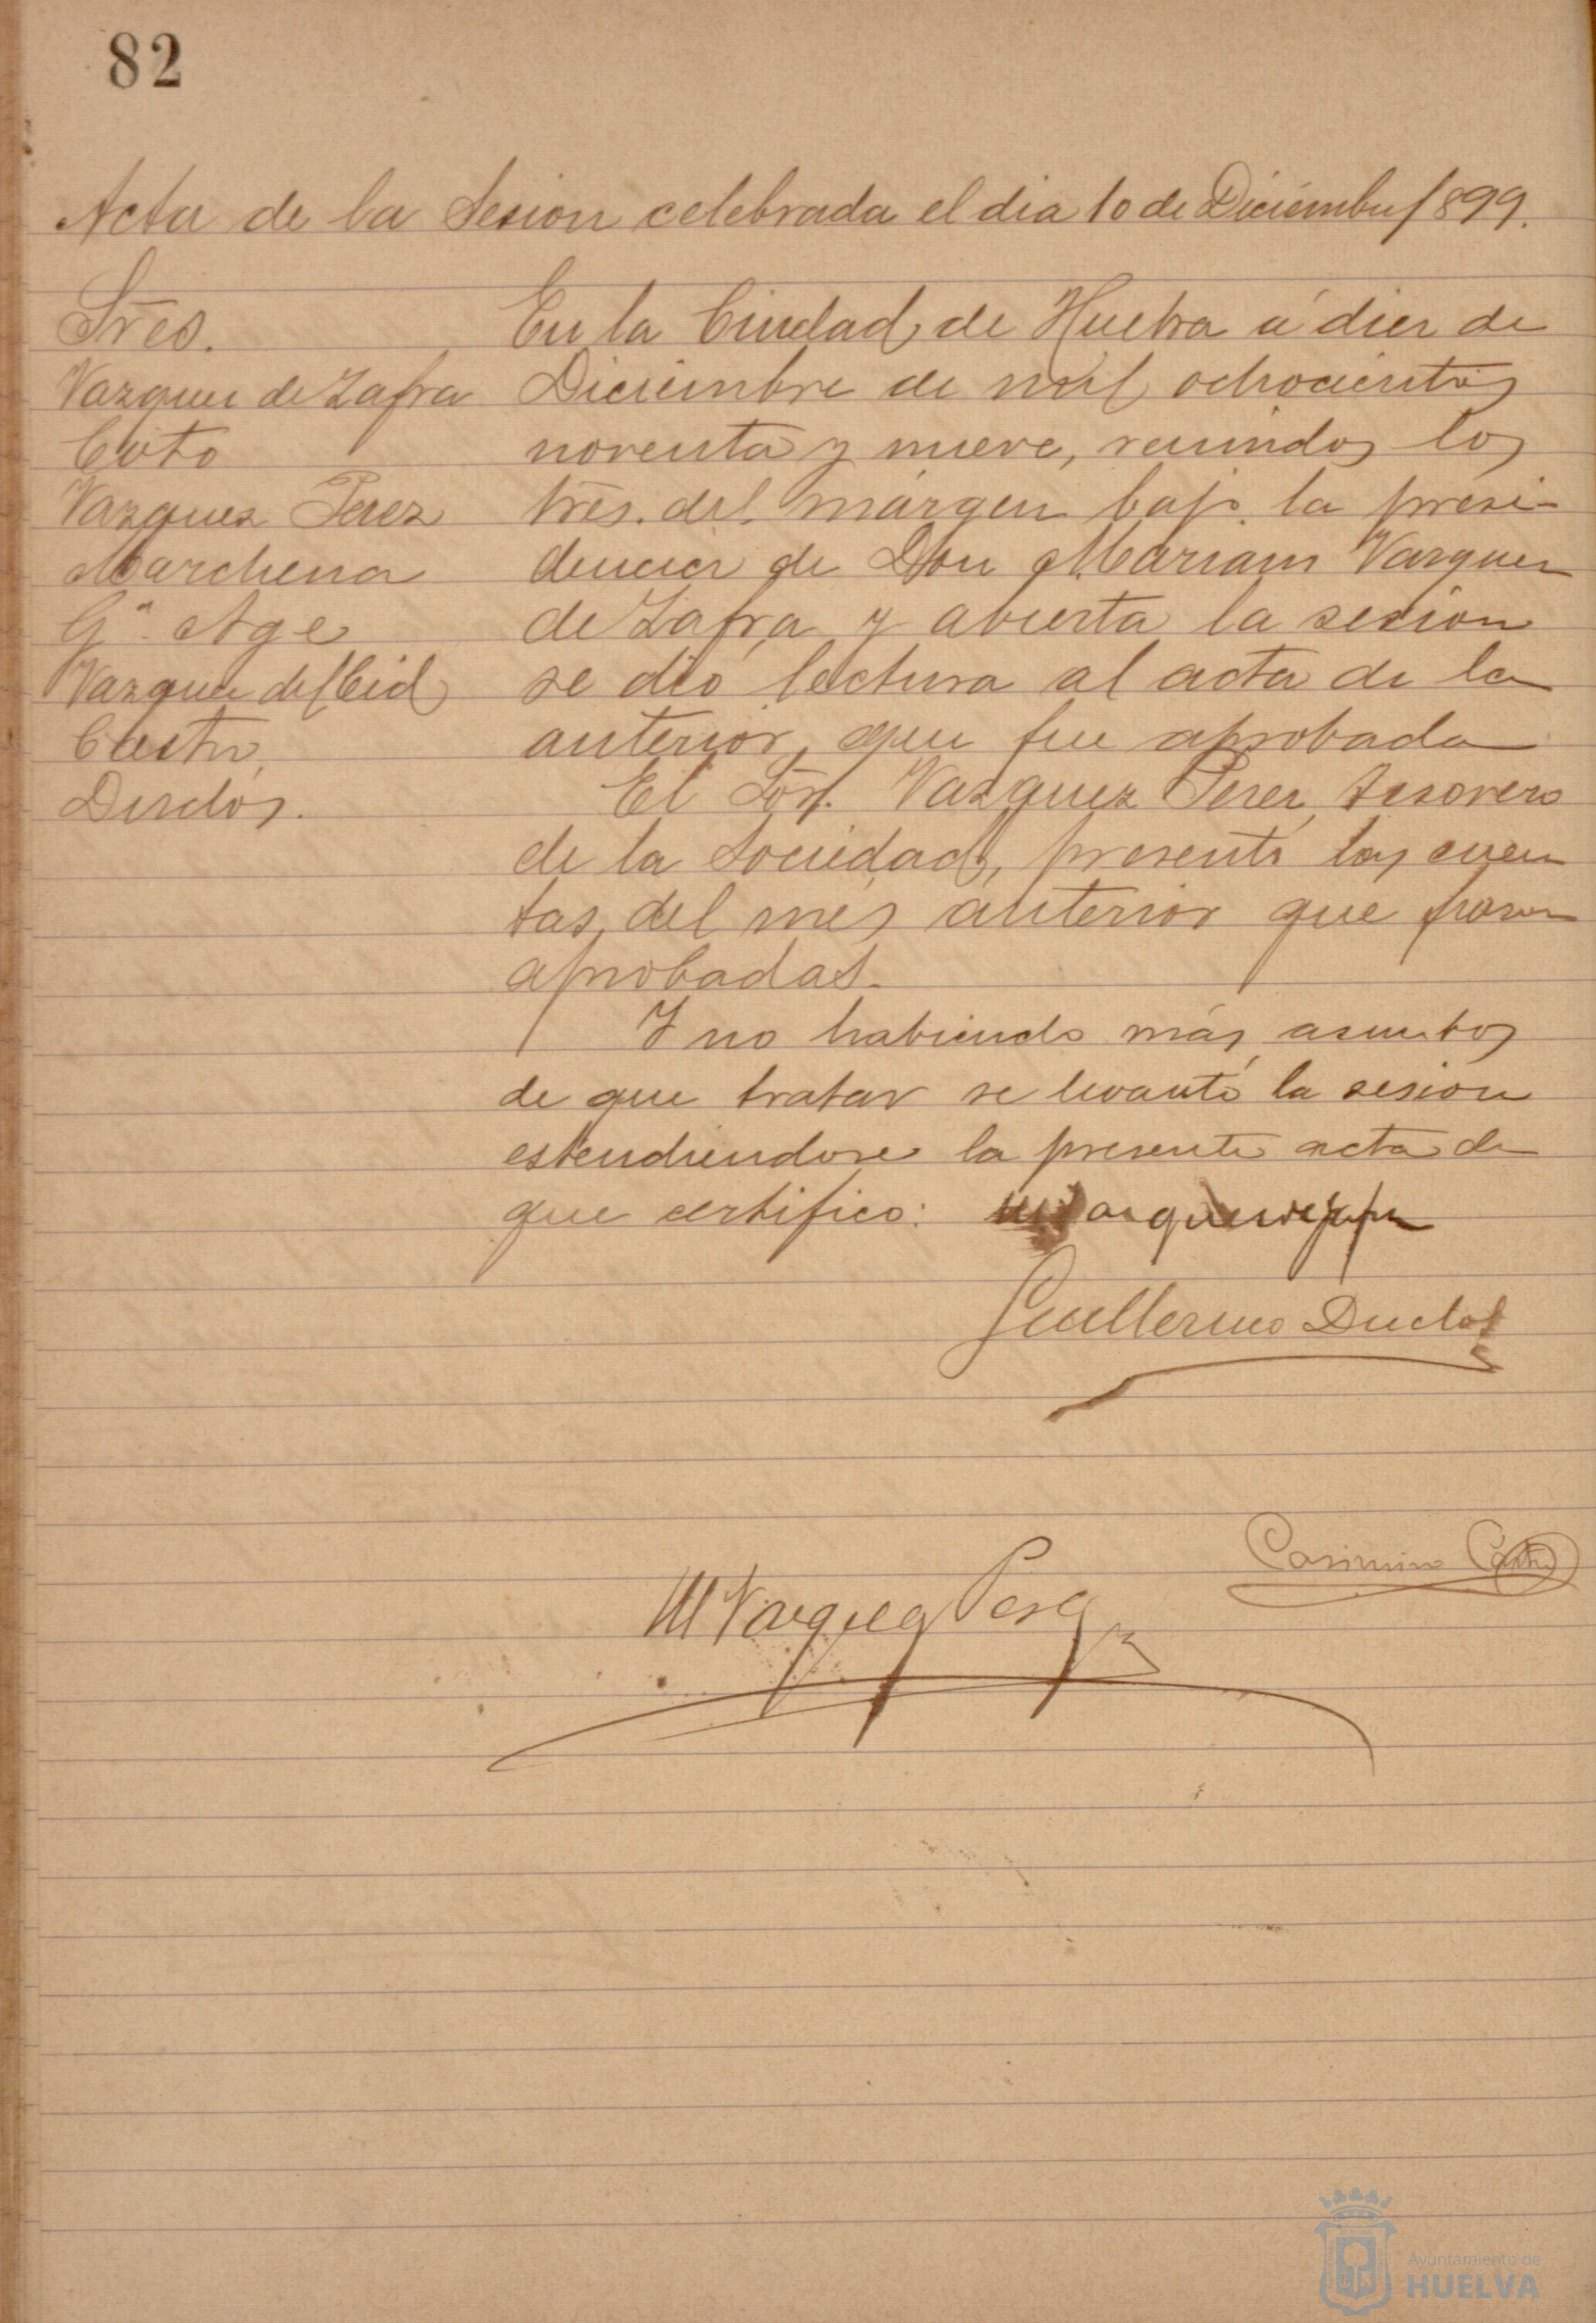 82
Acta de la Sesion celebrada el dia 10 de Diciembre/899.
Sres.
Vazquez de Zafra
Coto
Vazquez Perez
Marchena
Gª. Age
Vazquez del Cid
Castro
Duclós.
En la Ciudad de Huelva á diez de
Diciembre de mil ochocientos
noventa y nueve, reunidos los
Sres. del márgen bajo la presi-
dencia de Don Mariano Vazquez
de Zafra y abierta la sesion
se dió lectura al acta de la
anterior, que fue aprobada
El Sór. Vazquez Perez, tesorero
de la Sociedad, presentó las cuen
tas del mes anterior que fueron
aprobadas.
Y no habiendo más asuntos
de que tratar se levantó la sesion
estendiendose la presente acta de
que certifico:
Guillermo Duclos
Casimiro Castro
M Vazquez Perez
Ayuntamiento de
HUELVA